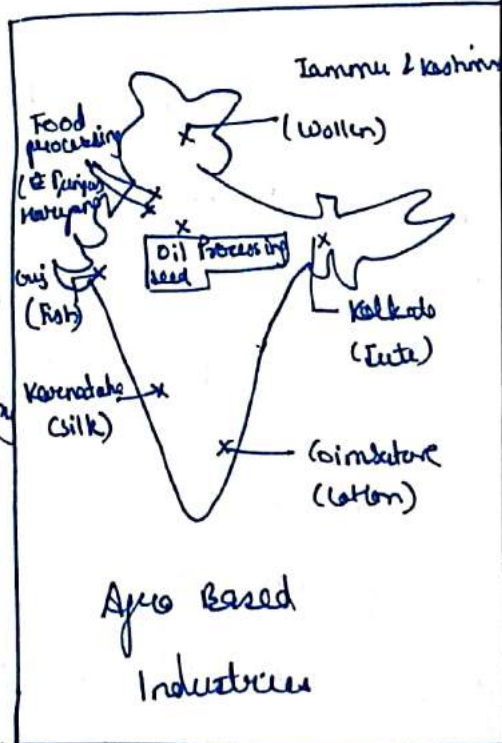 Iammu & Kashmir
(Wollen)
Food
processing
(& Punjab
Haryana)
Oil Processing
seed
Guj
(Fish)
Kolkata
(Jute)
Karnataka
(Silk)
Coimbatore
(Cotton)
Agro Based
Industries